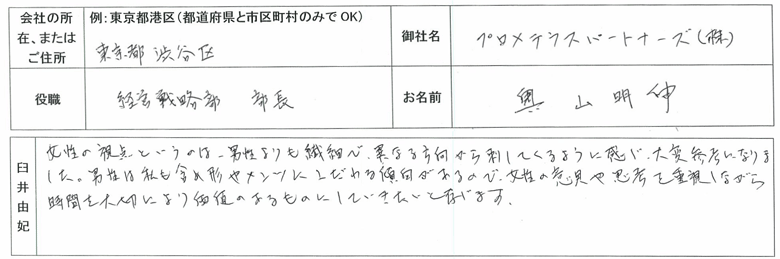 会社の所在、またはご住所
例:東京都港区(都道府県と市区町村のみでOK)
東京都 渋谷区
御社名
プロメテウスパートナーズ(株)
役職
経営戦略部 部長
お名前
奥山明伸
臼井由妃
女性の視点というのは、男性よりも繊細で、異なる方向から刺してくるように感じ、大変参考になりま
した。男性は私も含め形やメンツにこだわる傾向があるので、女性の意見や思考を重視しながら
時間を大切により価値のあるものにしていきたいと存じます。